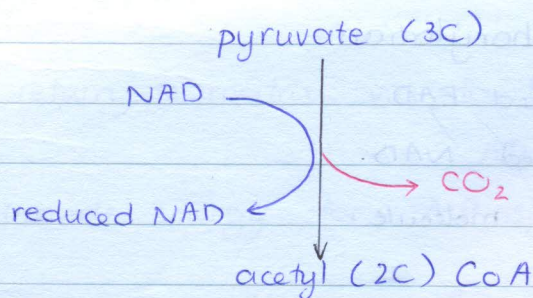 pyruvate (3C)
NAD
CO₂
reduced NAD
acetyl (2C) CoA